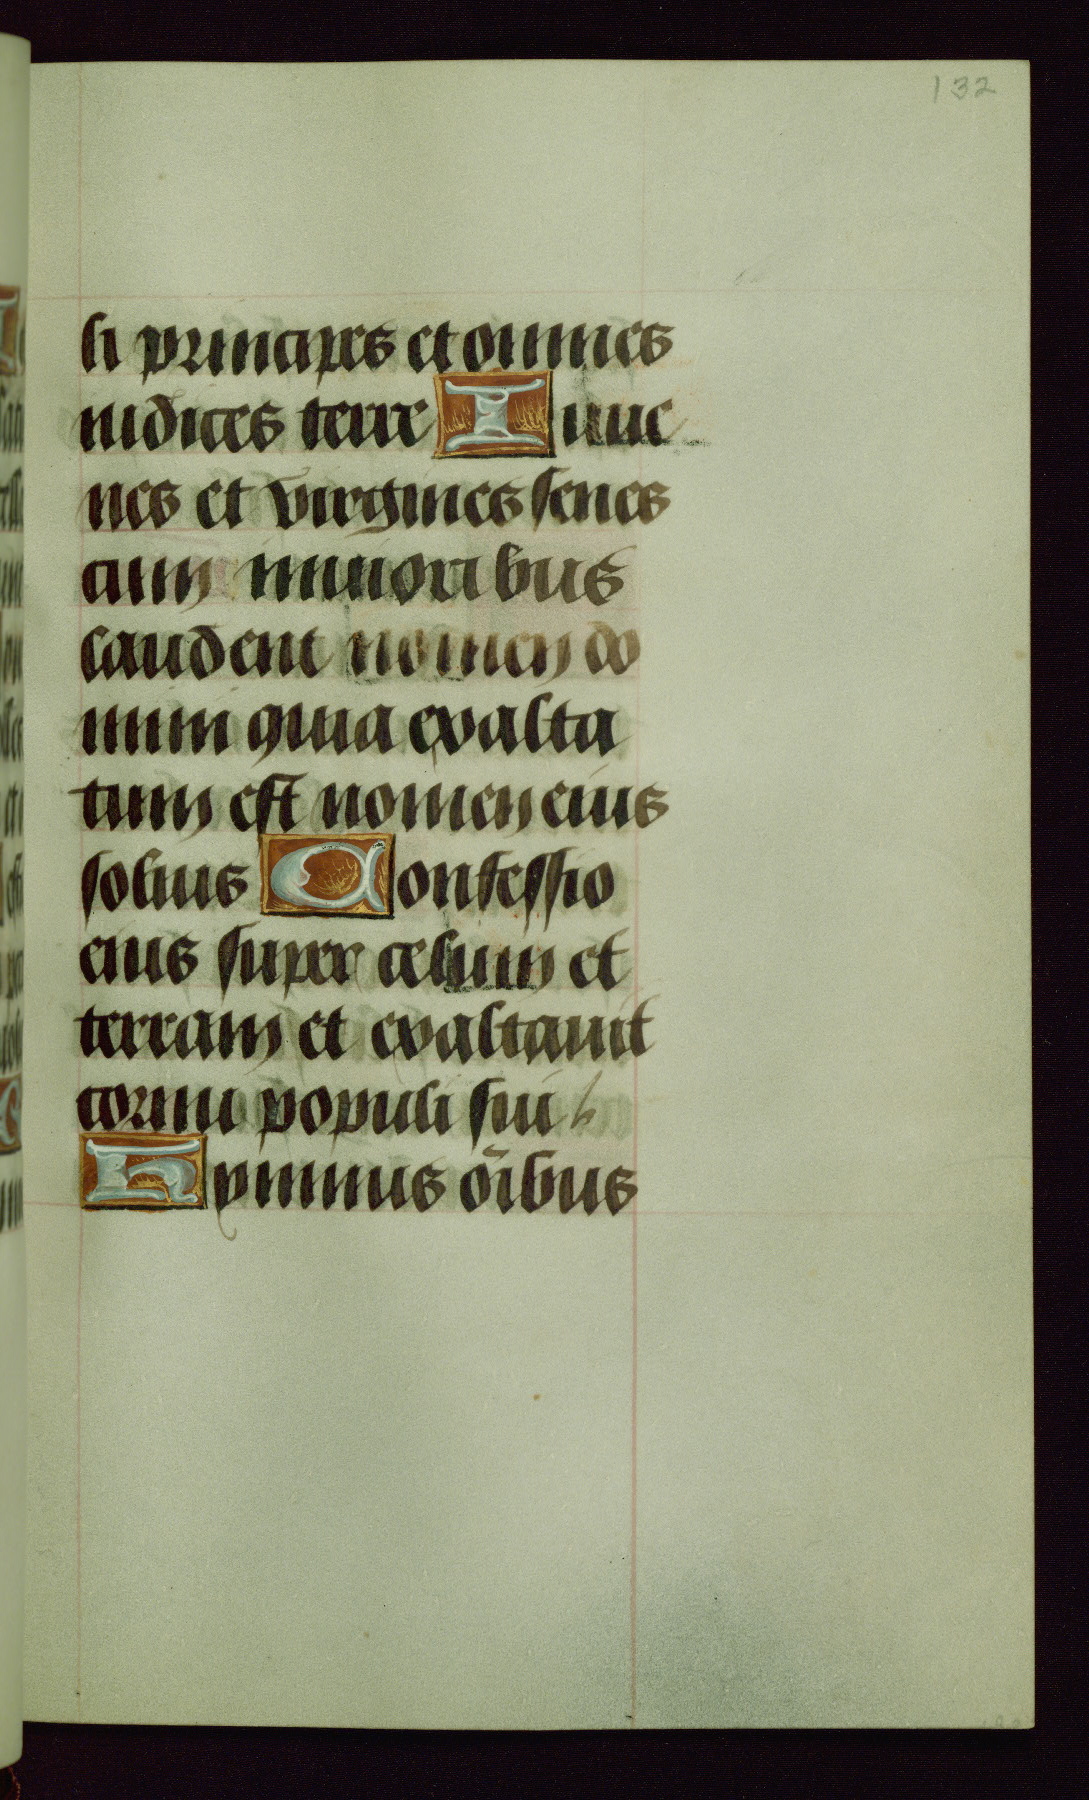 132
li principes et omnes
iudices terre Iuue
nes et virgines senes
cum iunioribus
laudent nomen do
mini quia exalta
tum est nomen eius
solius Confessio
eius super celum et
terram et exaltauit
cornu populi sui
hymnus oībus